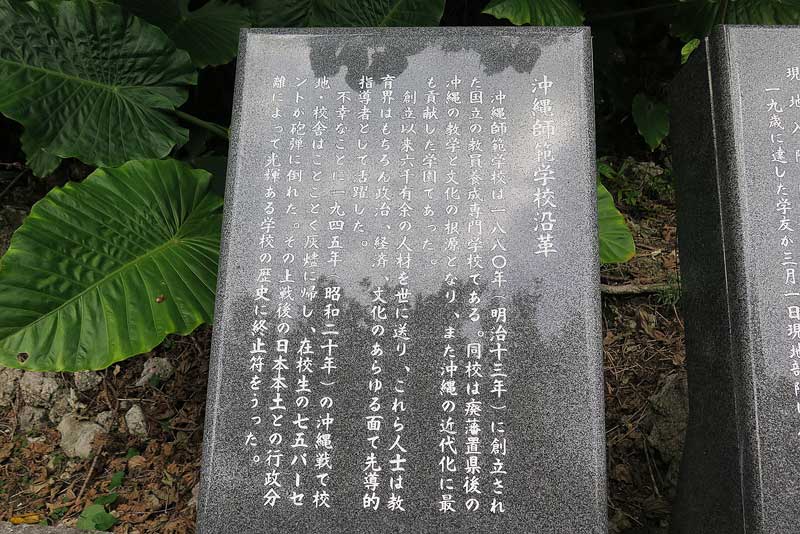 沖縄師範学校沿革
沖縄師範学校は一八八〇年（明治十三年）に創立され
た国立の教員養成専門学校である。同校は廃藩置県後の
沖縄の教学と文化の根源となり、また沖縄の近代化に最
も貢献した学園であった。
創立以来六千有余の人材を世に送り、これら人士は教
育界はもちろん政治、経済、文化のあらゆる面で先導的
指導者として活躍した。
不幸なことに一九四五年（昭和二十年）の沖縄戦で校
地・校舎はことごとく灰燼に帰し、在校生の七五パーセ
ントが砲弾に倒れた。その上戦後の日本本土との行政分
離によって光輝ある学校の歴史に終止符をうった。
現地入隊
一九歳に達した学友が三月一日現地部隊に